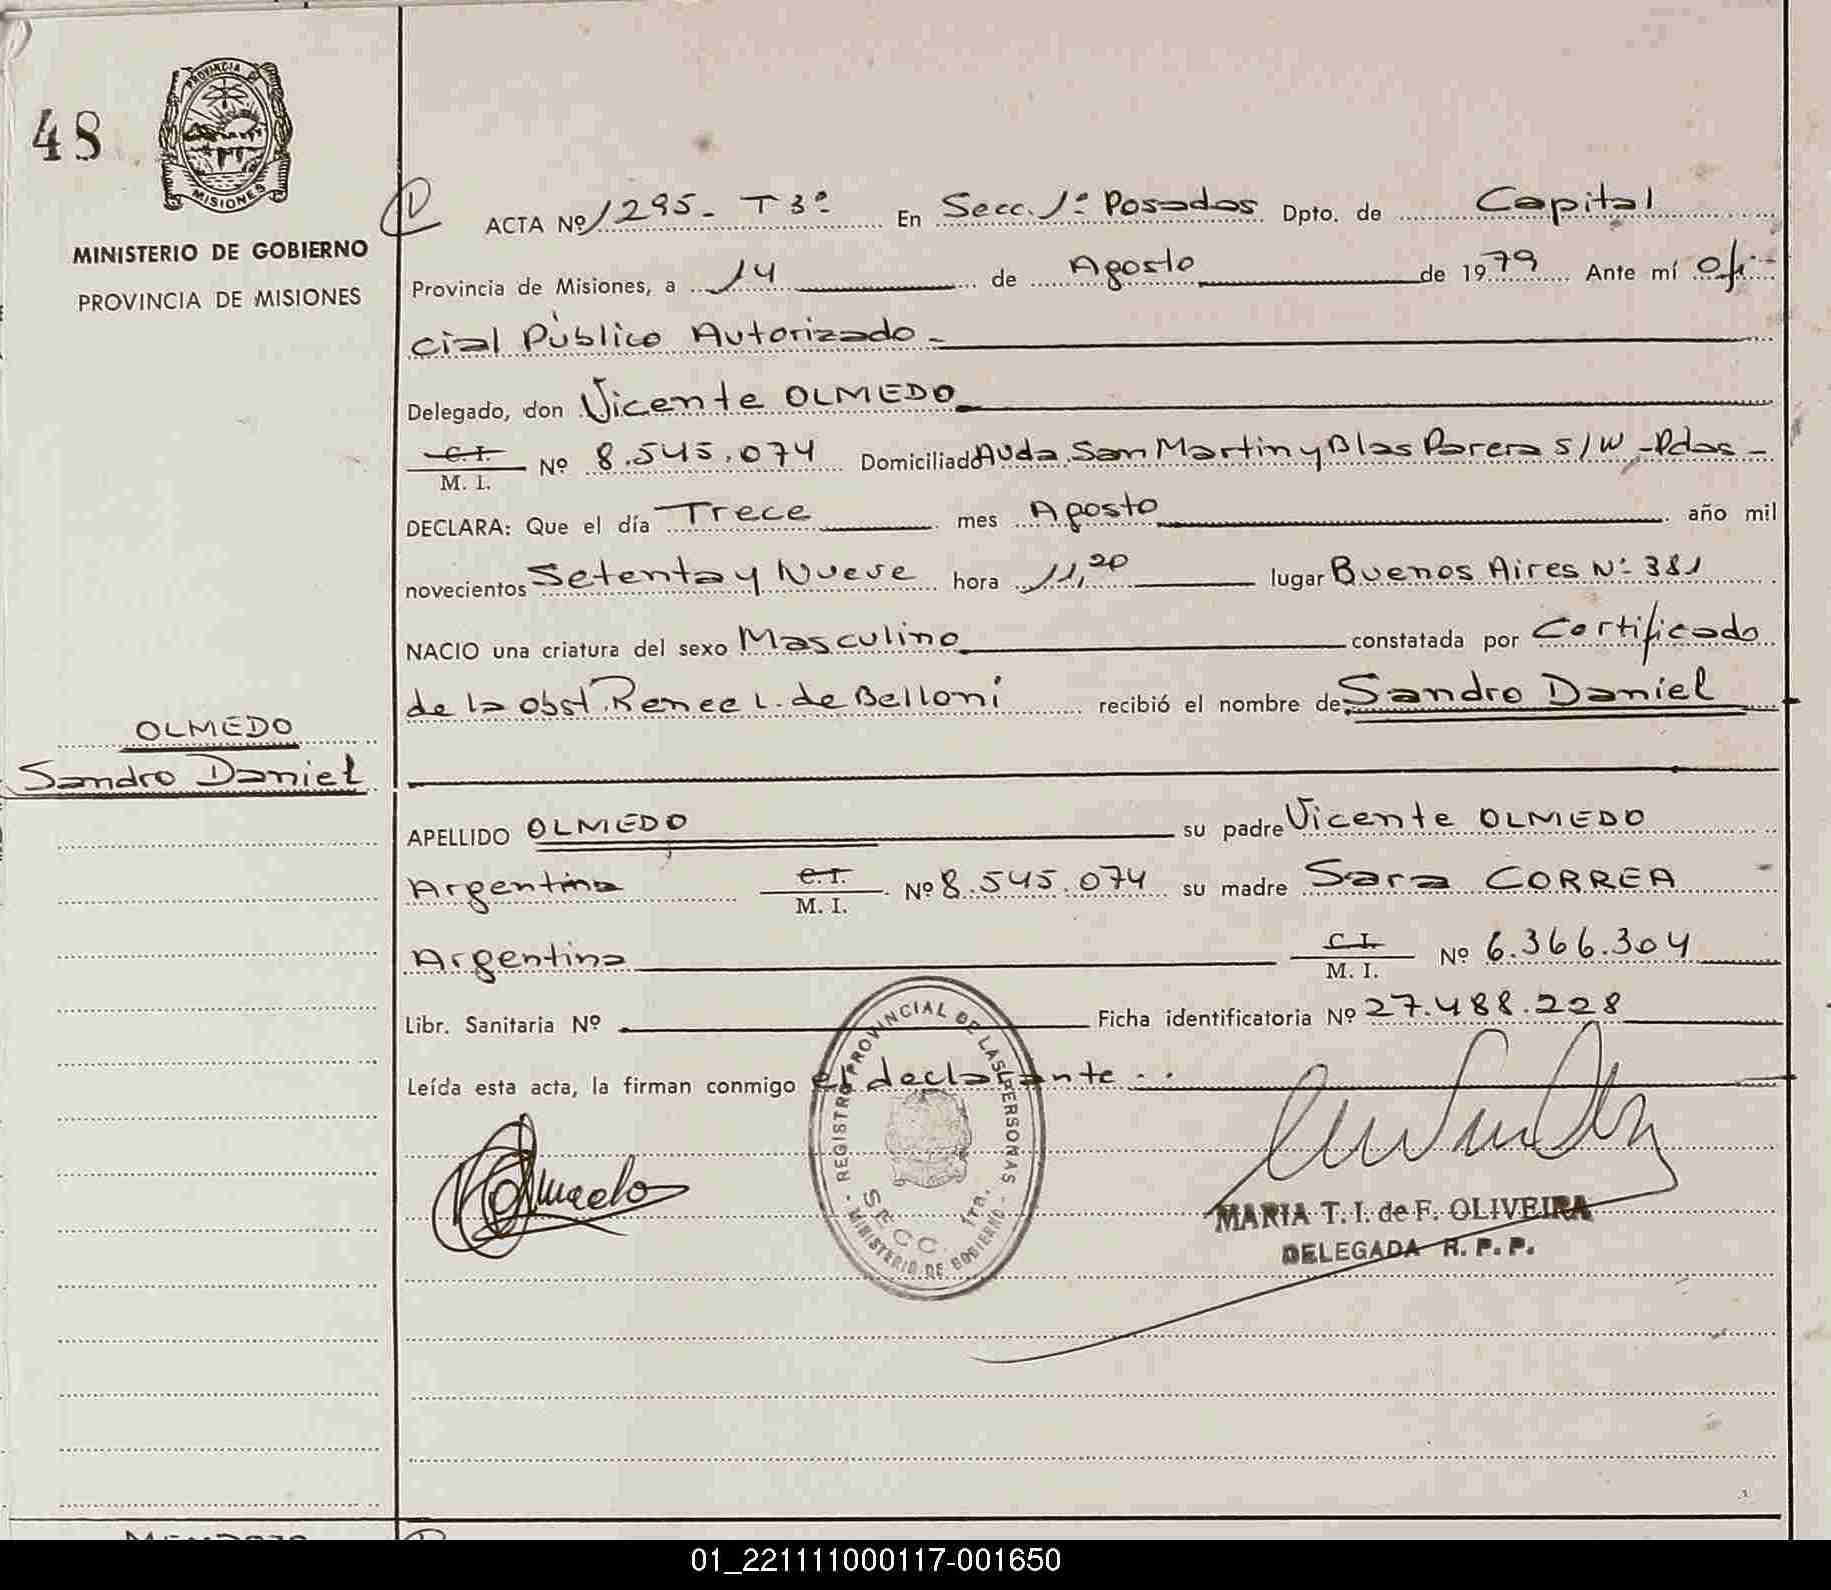 48
PROVINCIA DE
MISIONES
MINISTERIO DE GOBIERNO
PROVINCIA DE MISIONES
ACTA Nº 1295- T 3º En Secc. 1º Posadas Dpto. de Capital
Provincia de Misiones, a 14 de Agosto de 1979 Ante mí Ofi-
cial Público Autorizado-
Delegado, don Vicente OLMEDO
C.I.
M. I. Nº 8.545.074 Domiciliado Avda. San Martin y Blas Parera S/N-Pdas-
DECLARA: Que el día Trece mes Agosto año mil
novecientos Setenta y Nueve hora 11,20 lugar Buenos Aires Nº 381
NACIO una criatura del sexo Masculino constatada por Certificado
de la obst. Renee L. de Belloni recibió el nombre de Sandro Daniel
OLMEDO
Sandro Daniel
APELLIDO OLMEDO su padre Vicente OLMEDO
Argentina C.I. M. I. Nº 8.545.074 su madre Sara CORREA
Argentina C.I. M. I. Nº 6.366.304
Libr. Sanitaria Nº Ficha identificatoria Nº 27.488.228
Leída esta acta, la firman conmigo el declarante..
REGISTRO PROVINCIAL DE LAS PERSONAS - MINISTERIO DE GOBIERNO -
SECC. 1ra.
Olmedo
MARIA T. I. de F. OLIVEIRA
DELEGADA R. P. P.
01_221111000117-001650